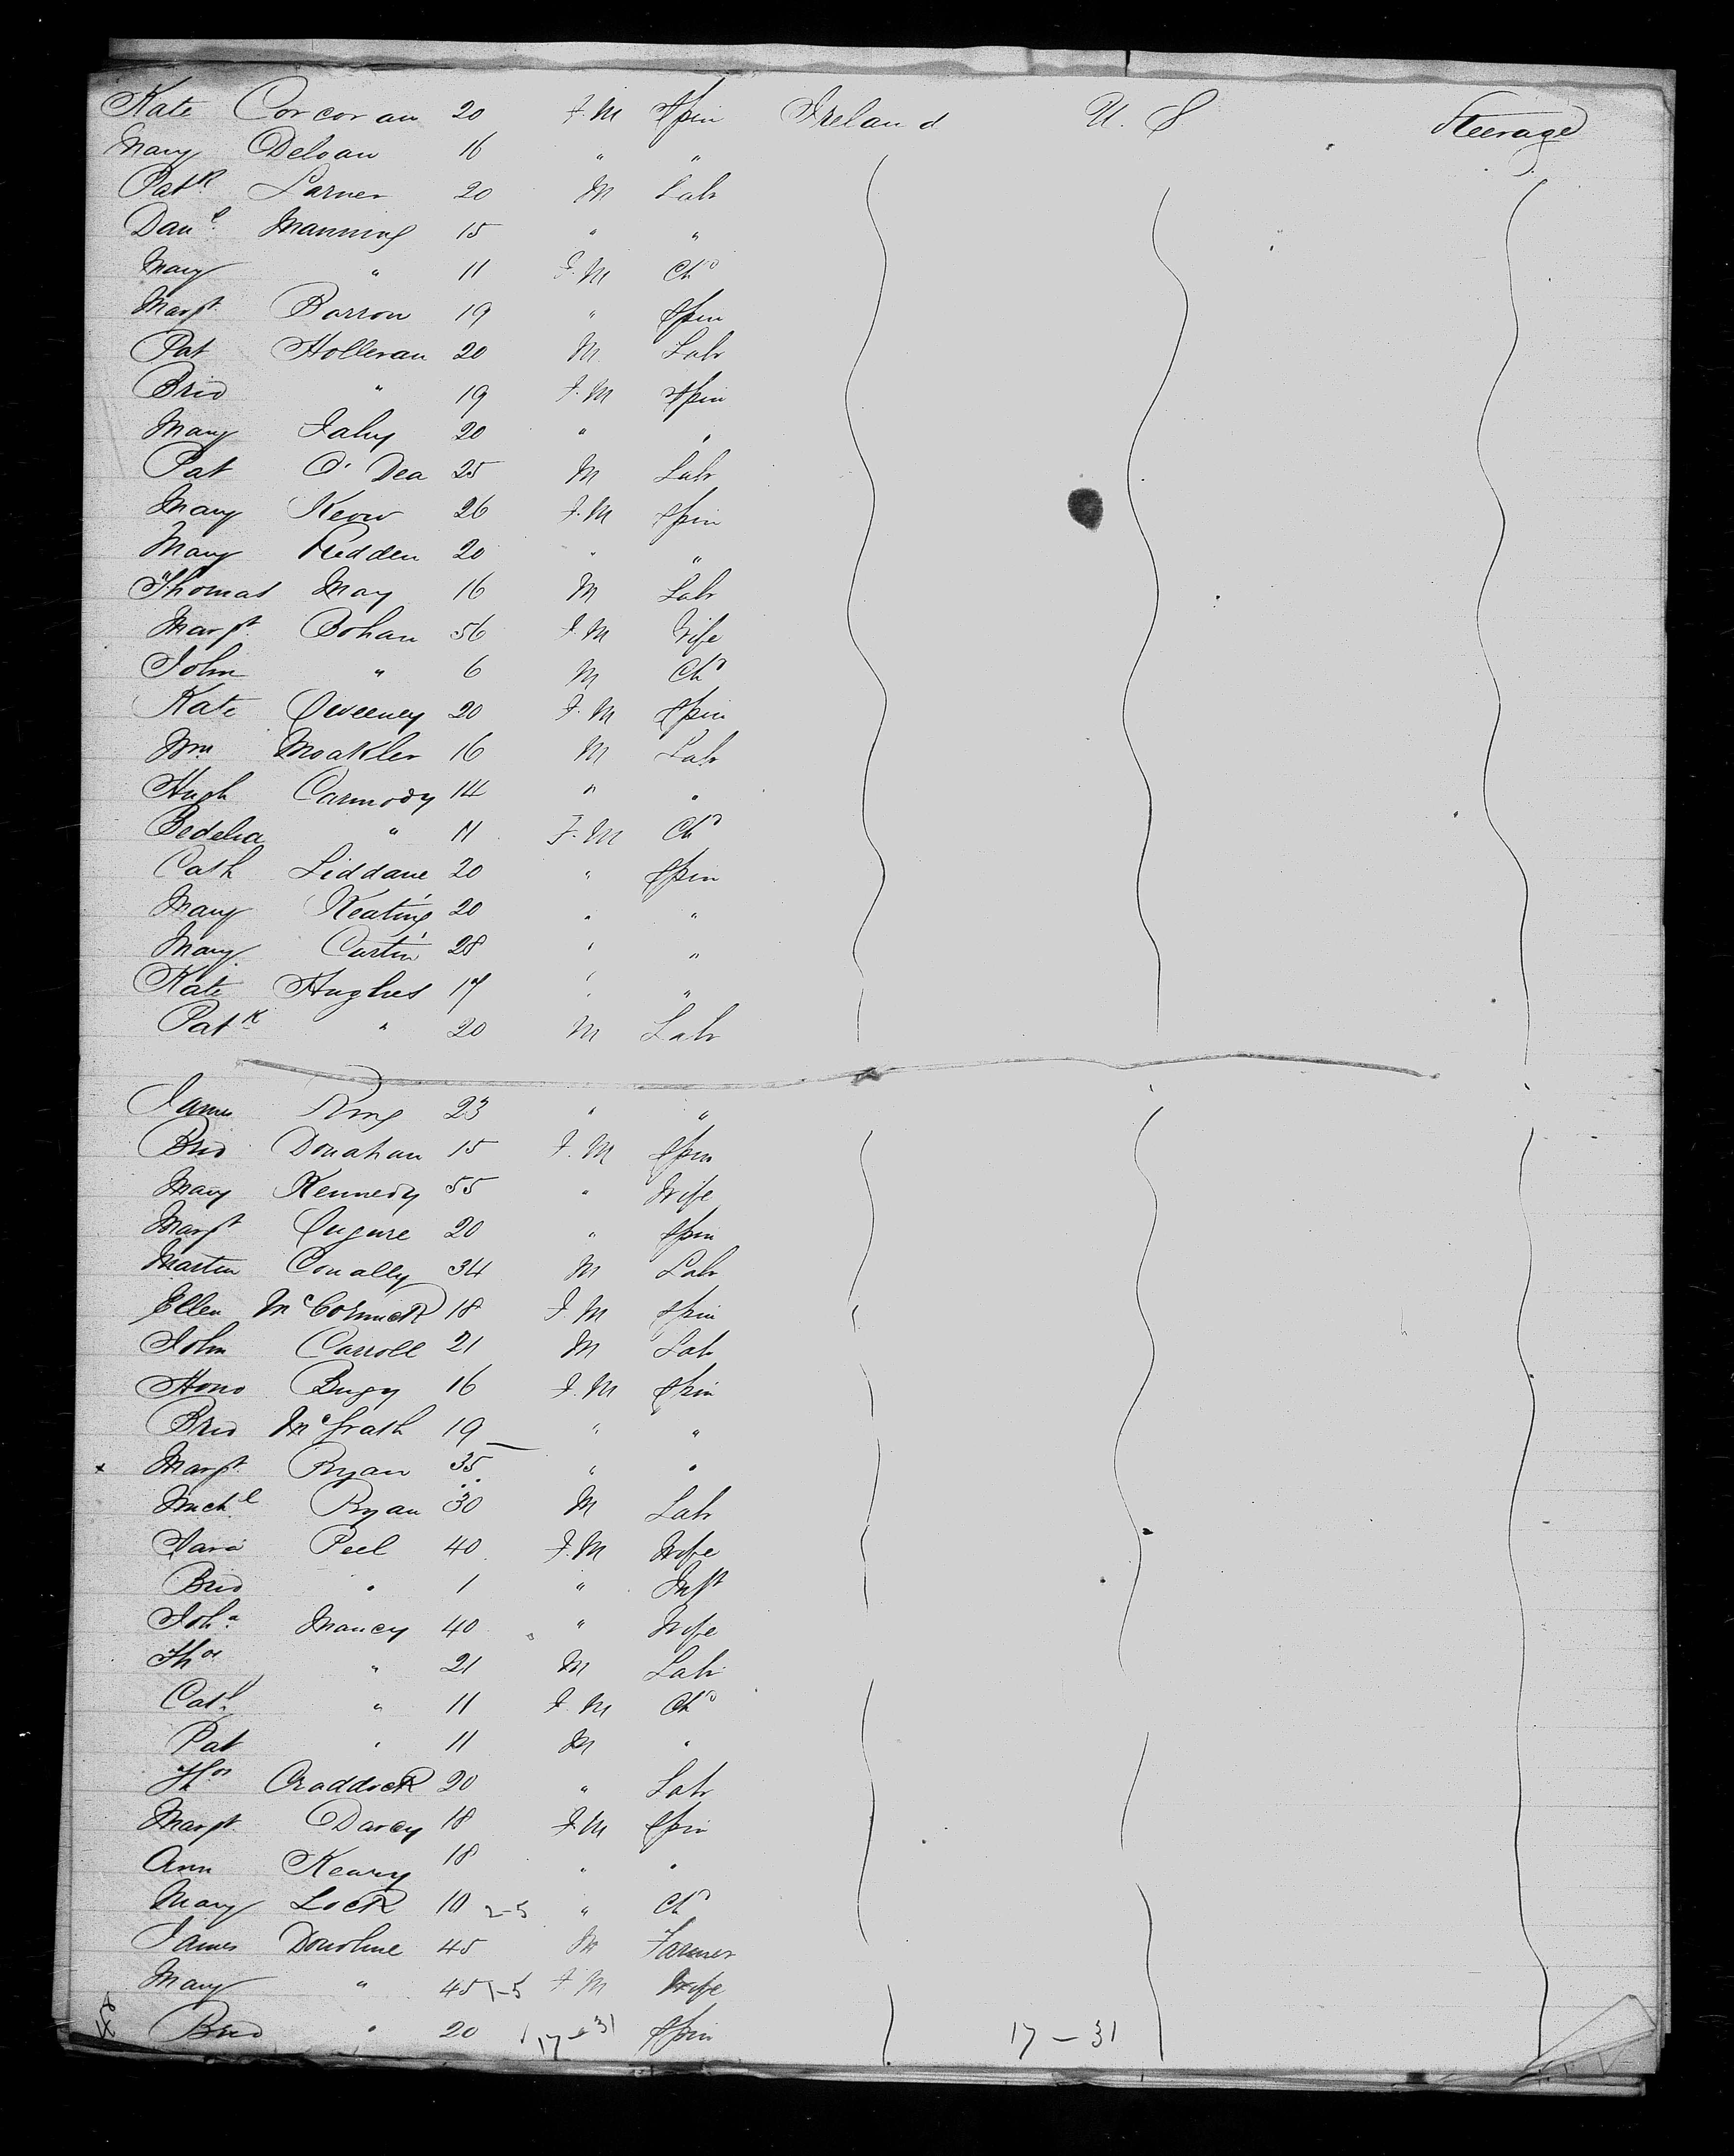 Kate Corcoran 20 F.M Spin Ireland U.S Steerage
Mary Deloan 16 " "
Patk Larner 20 M Labr
Danl Manning 15 " "
Mary " 11 F.M Chd
Margt Barron 19 " Spin
Pat Holleran 20 M Labr
Brid " 19 F.M Spin
Mary Fahy 20 " "
Pat O'Dea 25 M Labr
Mary Keow 26 F.M Spin
Mary Redden 20 " "
Thomas May 16 M Labr
Margt Bohan 56 F.M Wife
John " 6 M Chd
Kate Sweeney 20 F.M Spin
Wm Moakler 16 M Labr
Hugh Carmody 14 " "
Bedelia " 11 F.M Chd
Cath Liddane 20 " Spin
Mary Keating 20 " "
Mary Curtin 28 " "
Kate Hughes 17 " "
Patk " 20 M Labr
James Ring 23 " "
Brid Donahan 15 F.M Spin
Mary Kennedy 55 " Wife
Margt 20 " Spin
Martin Conally 34 M Labr
Ellen McCormick 18 F.M Spin
John Carroll 21 M Lab
Hono Bugy 16 F.M Spin
Brid McGrath 19 " "
x Margt Ryan 35 " "
Michl Ryan 30 M Labr
Sara Peel 40 F.M Wife
Brid " 1 " Inft
Joha Mancy 40 " Wife
Thos " 21 M Labr
Cath " 11 F.M Chd
Pat " 11 M "
Thos Craddock 20 " Labr
Margt Darcy 18 F.M Spin
Ann Keary 18 " "
Mary Lock 10 2-5 " Chd
James Donohue 45 M Farmer
Mary " 45 1-5 F.M Wife
Brid " 20 17-31 Spin 17-31